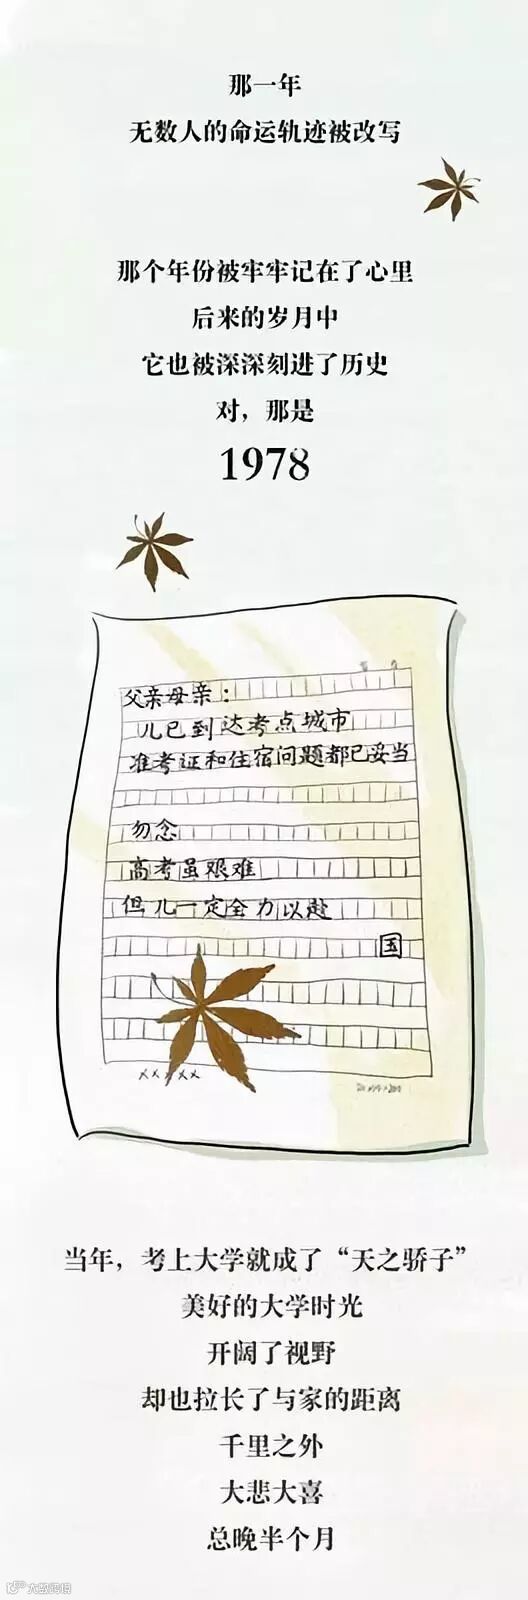 那一年
无数人的命运轨迹被改写
那个年份被牢牢记在了心里
后来的岁月中
它也被深深刻进了历史
对，那是
1978
父亲母亲：
儿已到达考点城市
准考证和住宿问题都已妥当
勿念
高考虽艰难
但儿一定全力以赴
国
×××××
当年，考上大学就成了“天之骄子”
美好的大学时光
开阔了视野
却也拉长了与家的距离
千里之外
大悲大喜
总晚半个月
大数跨境